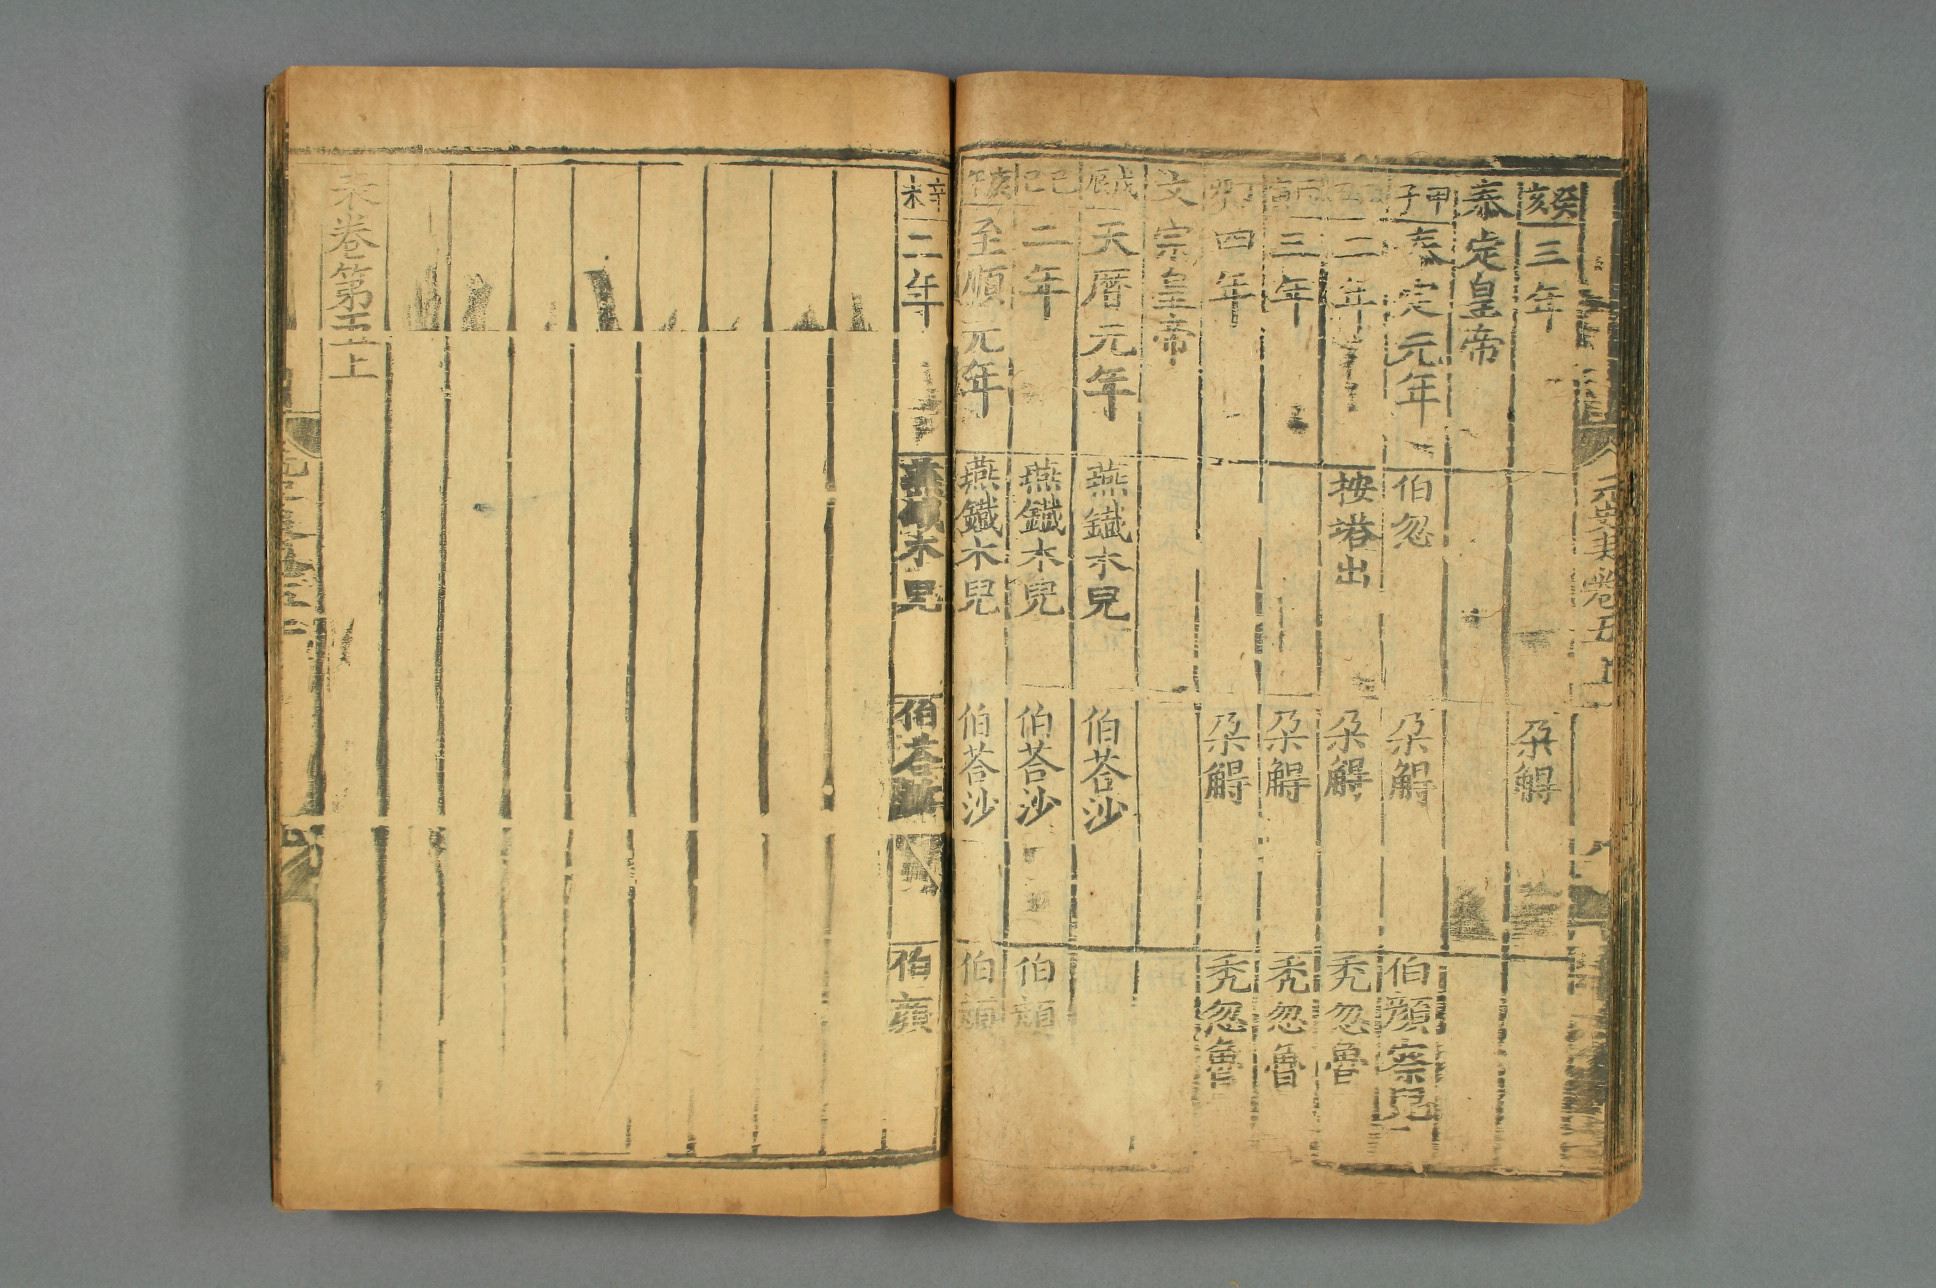 癸亥三年 朶䚟
泰定皇帝
甲子泰定元年 伯忽 朶䚟 伯顏察兒
二年 按塔出 朶䚟 禿忽魯
三年 朶䚟 禿忽魯
四年 朶䚟 禿忽魯
文宗皇帝
戊辰天曆元年 燕鐵木兒 伯荅沙
己巳二年 燕鐵木兒 伯荅沙 伯顏
至順元年 燕鐵木兒 伯荅沙 伯顏
辛未二年 燕鐵木兒 伯荅沙 伯顏
表卷第五上
元史表卷五上